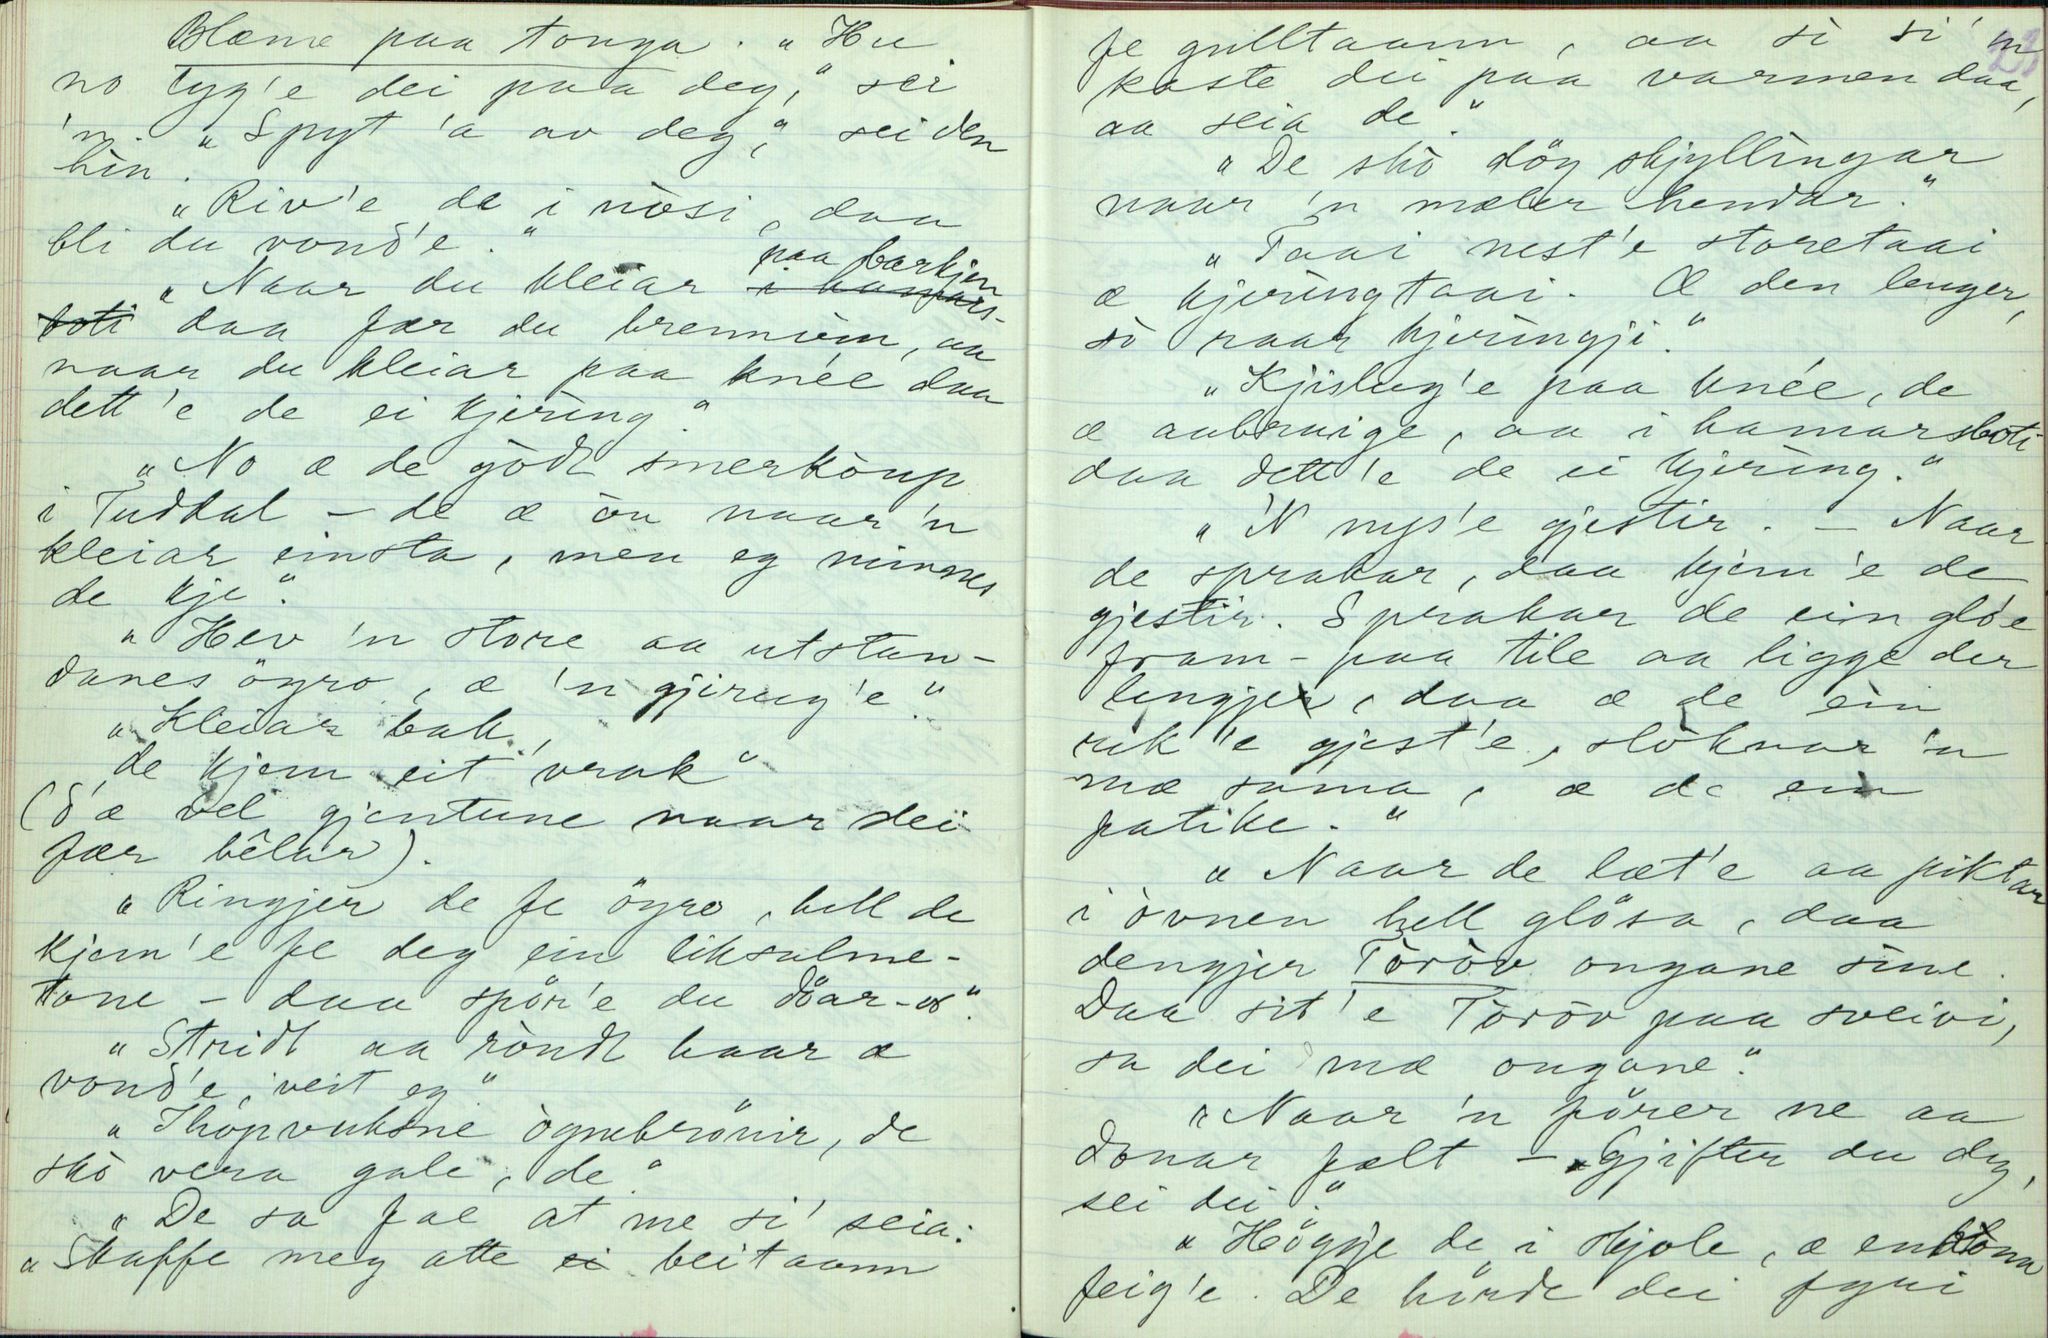 Blæme paa tonga. "Hu
no lyg'e dei paa deg," sei
'n. "Spyt 'a av deg," sei den
hin.
"Riv'e de i nòsi, daa
bli du vond'e."
paa barkjen
"Naar du kleiar i hamars-
boti daa fær du brennvin, aa
naar du kleiar paa knée daa
dett'e de ei kjering."
"No æ de gòdt smerkòup
i Tuddal – de æ òu naar 'n
kleiar einsta, men eg minnes
de kje".
"Hev 'n store aa utstan-
danes ögro, æ 'n gjirug'e."
"Kleiar bak,
de kjem eit vrak"
(d'æ vel gjentune naar dei
fær bêlar).
"Ringjer de fe öyro, hell de
kjem'e fe deg ein liksalme-
tone – daa spör'e du döar-os".
"Stridt aa röndt haar æ
vond'e, veit eg"
"Ihopvuksne ògnebrönir, de
skò vera gale, de."
"De sa fæl at me si' seia:
"Skaffe meg atte ei beitaann
fe gulltaann, aa sì si' 'n
kaste dei paa varmen daa,
aa seia de."
"De skò dög skjyllingar
naar 'n mæler hendar."
"Taai nest'e storetaai
æ kjeringtaai. Æ den lenger,
sò raar kjeringji."
"Kjislug'e paa knée, de
æ aabruige, aa i hamarsboti
daa dett'e de ei kjering."
"'N nys'e gjestir. – Naar
de sprakar, daa kjem'e de
gjestir. Sprakar de ein glo'e
fram-paa tile aa ligge der
lengjer, daa æ de ein
rik'e gjest'e, slòknar 'n
mæ sama, æ de ein
fatike."
"Naar de læt'e aa piktar
i òvnen hell glösa, daa
dengjer Tòròv ongane sine.
Daa sit'e Tòròv paa sveivi,
sa dei mæ ongane."
"Naar 'n förer ne aa
donar fælt – "Gjifter du deg,
sei dei".
"Höggje de i skjole, æ en
feig'e. De hörde dei fyri